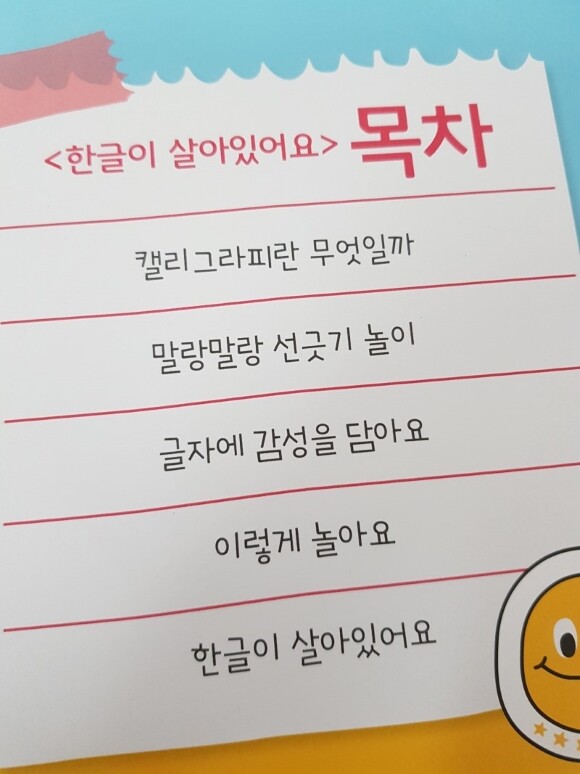 <한글이 살아있어요> 목차
캘리그라피란 무엇일까
말랑말랑 선긋기 놀이
글자에 감성을 담아요
이렇게 놀아요
한글이 살아있어요